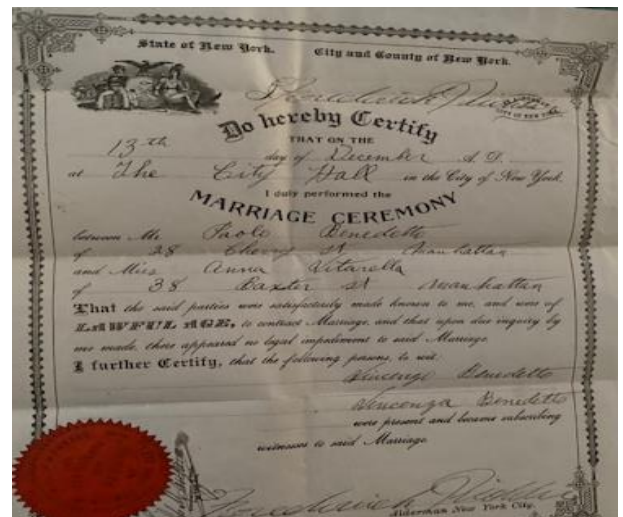 State of New York. City and County of New York.
Frederick
Do hereby Certify
THAT ON THE
13th day of December A. D.
at The City Hall in the City of New York.
I duly performed the
MARRIAGE CEREMONY
between Mr. Paolo Benedetto
of 28 Cherry st Manhattan
and Miss Anna Vitarella
of 38 Baxter st Manhattan
That the said parties were satisfactorily made known to me, and were of
LAWFUL AGE, to contract Marriage, and that upon due inquiry by
me made, there appeared no legal impediment to said Marriage.
I further Certify, that the following persons, to wit:
Vincenzo Benedetto
Vincenza Benedetto
were present and became subscribing
witnesses to said Marriage.
Frederick
Alderman New York City.